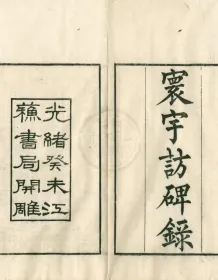 寰宇訪碑錄
光緒癸未江
蘇書局開雕